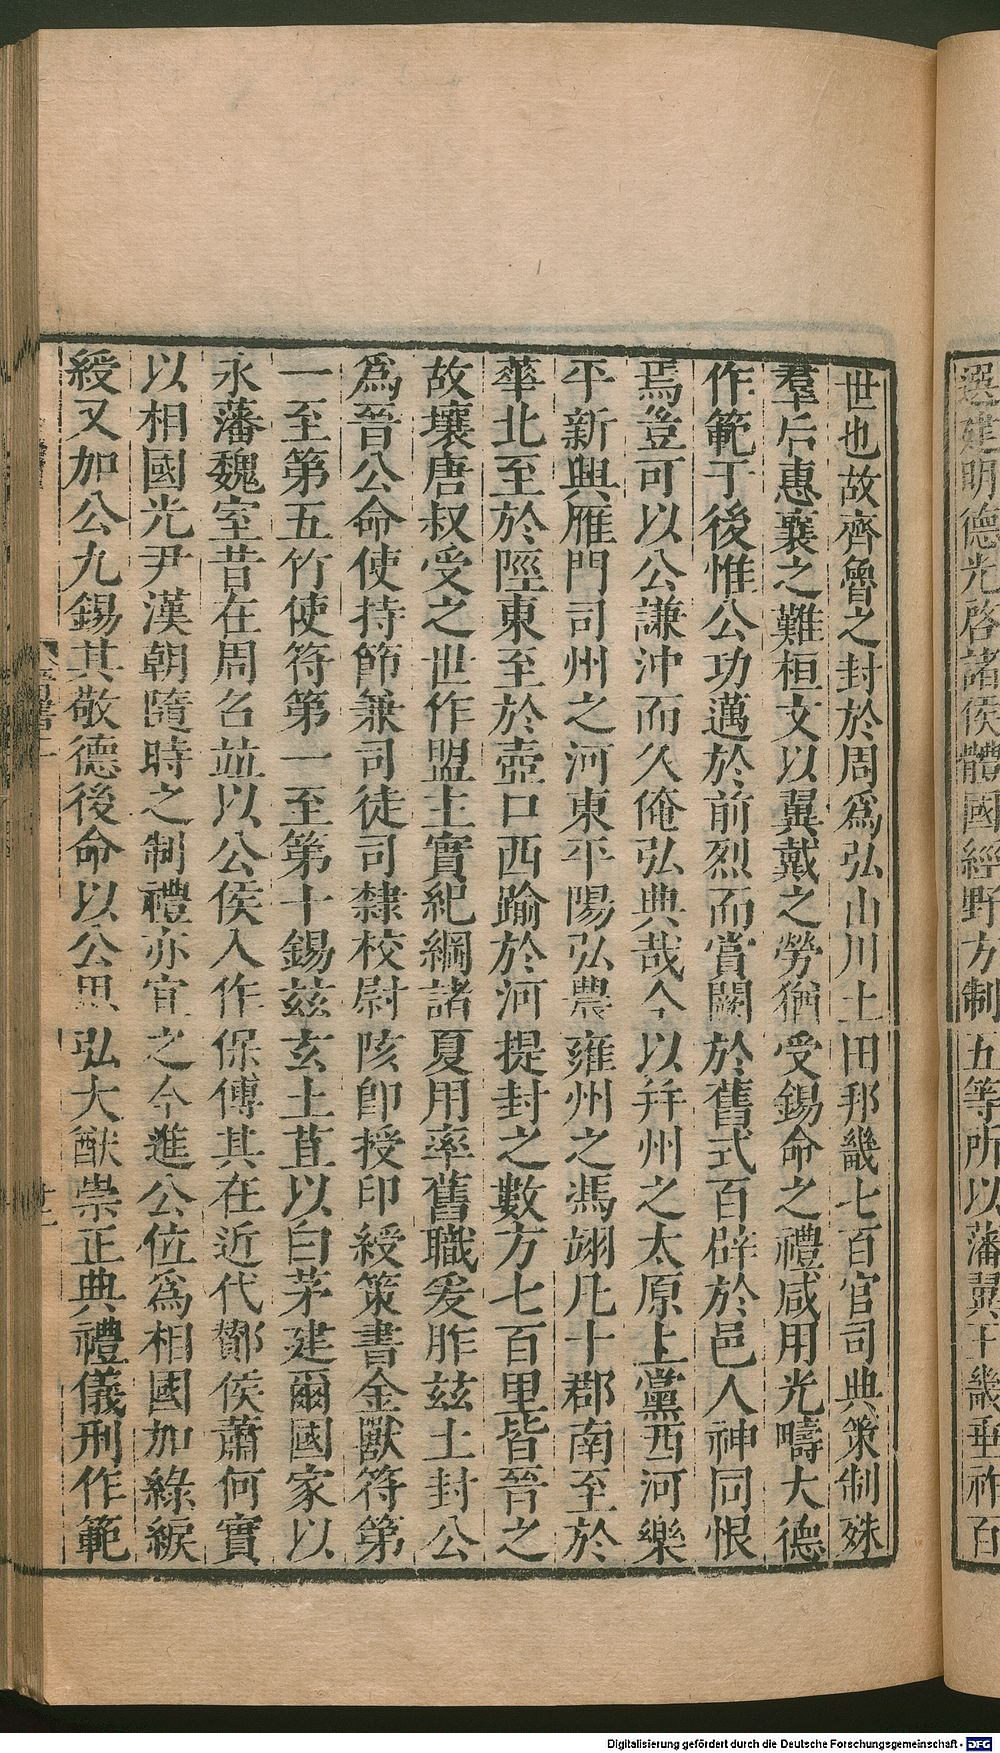 選建明德光啓諸侯體國經野方制五等所以藩翼王畿垂祚百
世也故齊魯之封於周爲弘山川土田邦畿七百官司典策制殊
羣后惠襄之難桓文以翼戴之勞猶受錫命之禮咸用光疇大德
作範于後惟公功邁於前烈而賞闕於舊式百辟於邑人神同恨
焉豈可以公謙沖而久俺弘典哉今以幷州之太原上黨西河樂
平新興雁門司州之河東平陽弘農雍州之馮翊凡十郡南至於
華北至於陘東至於壺口西踰於河提封之數方七百里皆晉之
故壤唐叔受之世作盟主實紀綱諸夏用率舊職爰胙茲土封公
爲晉公命使持節兼司徒司隸校尉陔卽授印綬策書金獸符第
一至第五竹使符第一至第十錫茲玄土苴以白茅建爾國家以
永藩魏室昔在周召並以公侯入作保傅其在近代酇侯蕭何實
以相國光尹漢朝隨時之制禮亦宜之今進公位爲相國加綠綟
綬又加公九錫其敬德後命以公思弘大猷崇正典禮儀刑作範
Digitalisierung gefördert durch die Deutsche Forschungsgemeinschaft - DFG